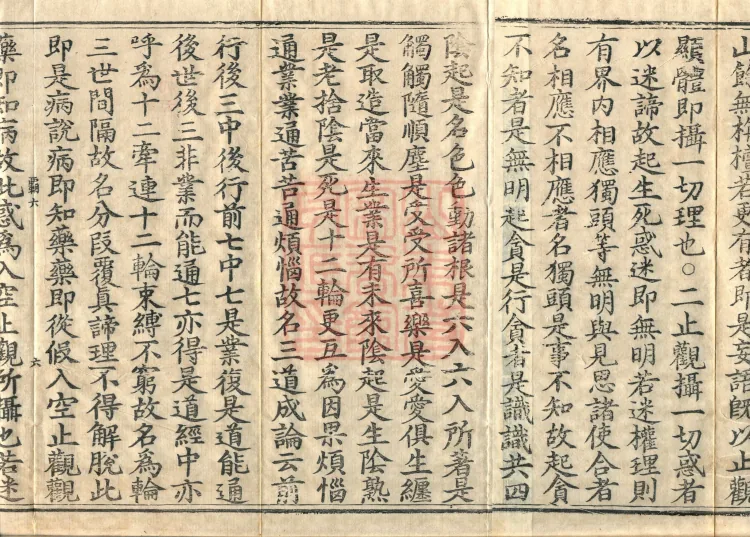 餘無析檀者更有者即是妄語既以止觀
顯體即攝一切理也○二止觀攝一切惑者
以迷諦故起生死惑迷即無明若迷權理則
有界内相應獨頭等無明與見思諸使合者
名相應不相應者名獨頭是事不知故起貪
不知者是無明起貪是行貪者是識識共四
陰起是名色色動諸根是六入六入所著是
觸觸隨順塵是受受所喜樂是愛愛俱生纏
是取造當來生業是有未來陰起是生陰熟
是老捨陰是死是十二輪更互爲因果煩惱
通業業通苦苦通煩惱故名三道成論云前
行後三中後行前七中七是業復是道能通
後世後三非業而能通七亦得是道經中亦
呼爲十二牽連十二輪束縛不窮故名爲輪
三世間隔故名分段覆真諦理不得解脫此
即是病說病即知藥藥即從假入空止觀觀
霸六
六
藥即知病故此惑爲入空止觀所攝也若迷